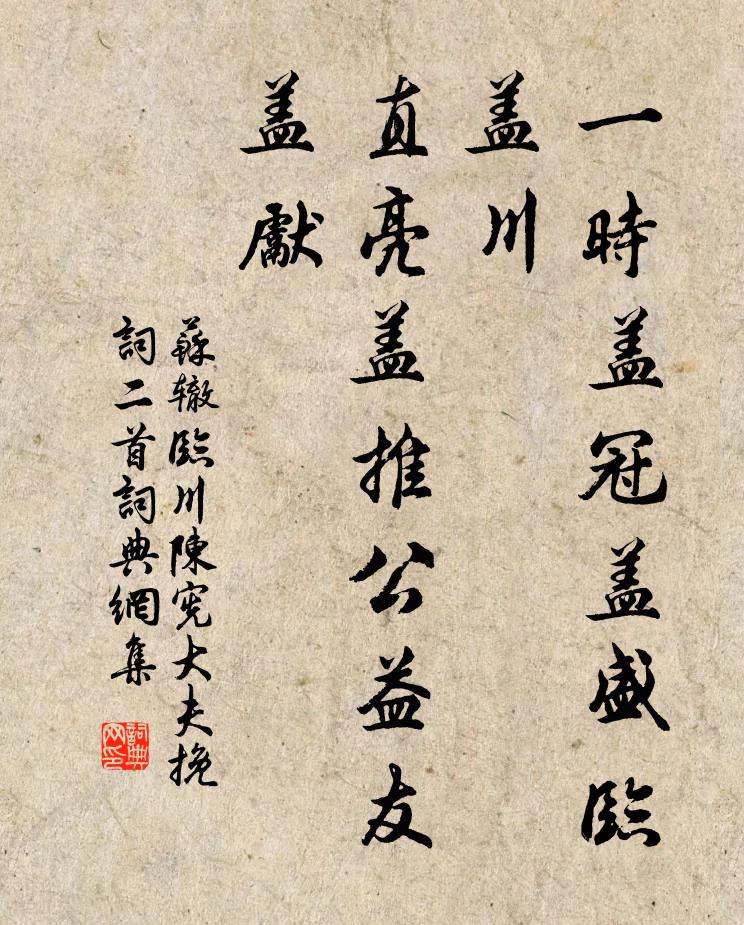 一時盖冠盖盛臨
盖川
直亮盖推公益友
盖獻
蘇辙臨川陳宪大夫挽
詞二首詞典網集
詞典
网印